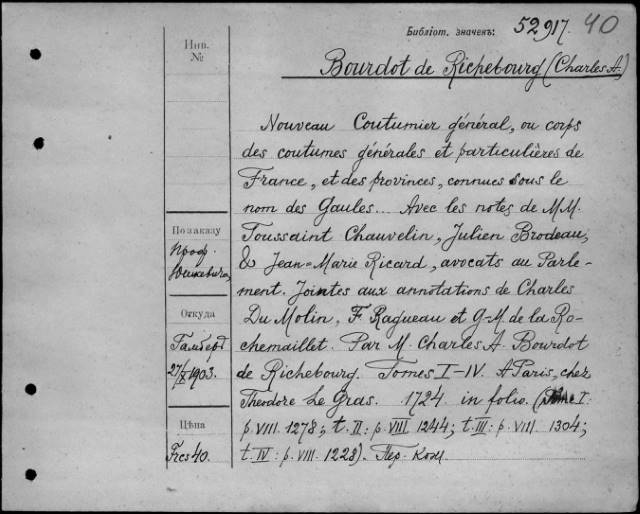 Библіот. значекъ: 52917. 40
Инв. №
Bourdot de Richebourg (Charles A.)
Nouveau Coutumier général, ou corps
des coutumes générales et particulières de
France, et des provinces, connues sous le
nom des Gaules... Avec les notes de MM.
Toussaint Chauvelin, Julien Brodeau,
& Jean-Marie Ricard, avocats au Parle-
ment. Jointes aux annotations de Charles
Du Molin, F. Ragueau et G-M. de la Ro-
chemaillet. Par M. Charles A. Bourdot
de Richebourg. Tomes I-IV. A Paris, chez
Theodore Le Gras. 1724 in folio. (Tome I:
p. VIII. 1278; t. II: p. VIII 1244; t. III: p. VIII. 1304;
t. IV: p. VIII. 1228). Пер. кож.
По заказу
проф.
Откуда
27/X 1903.
Цѣна
Frcs 40.